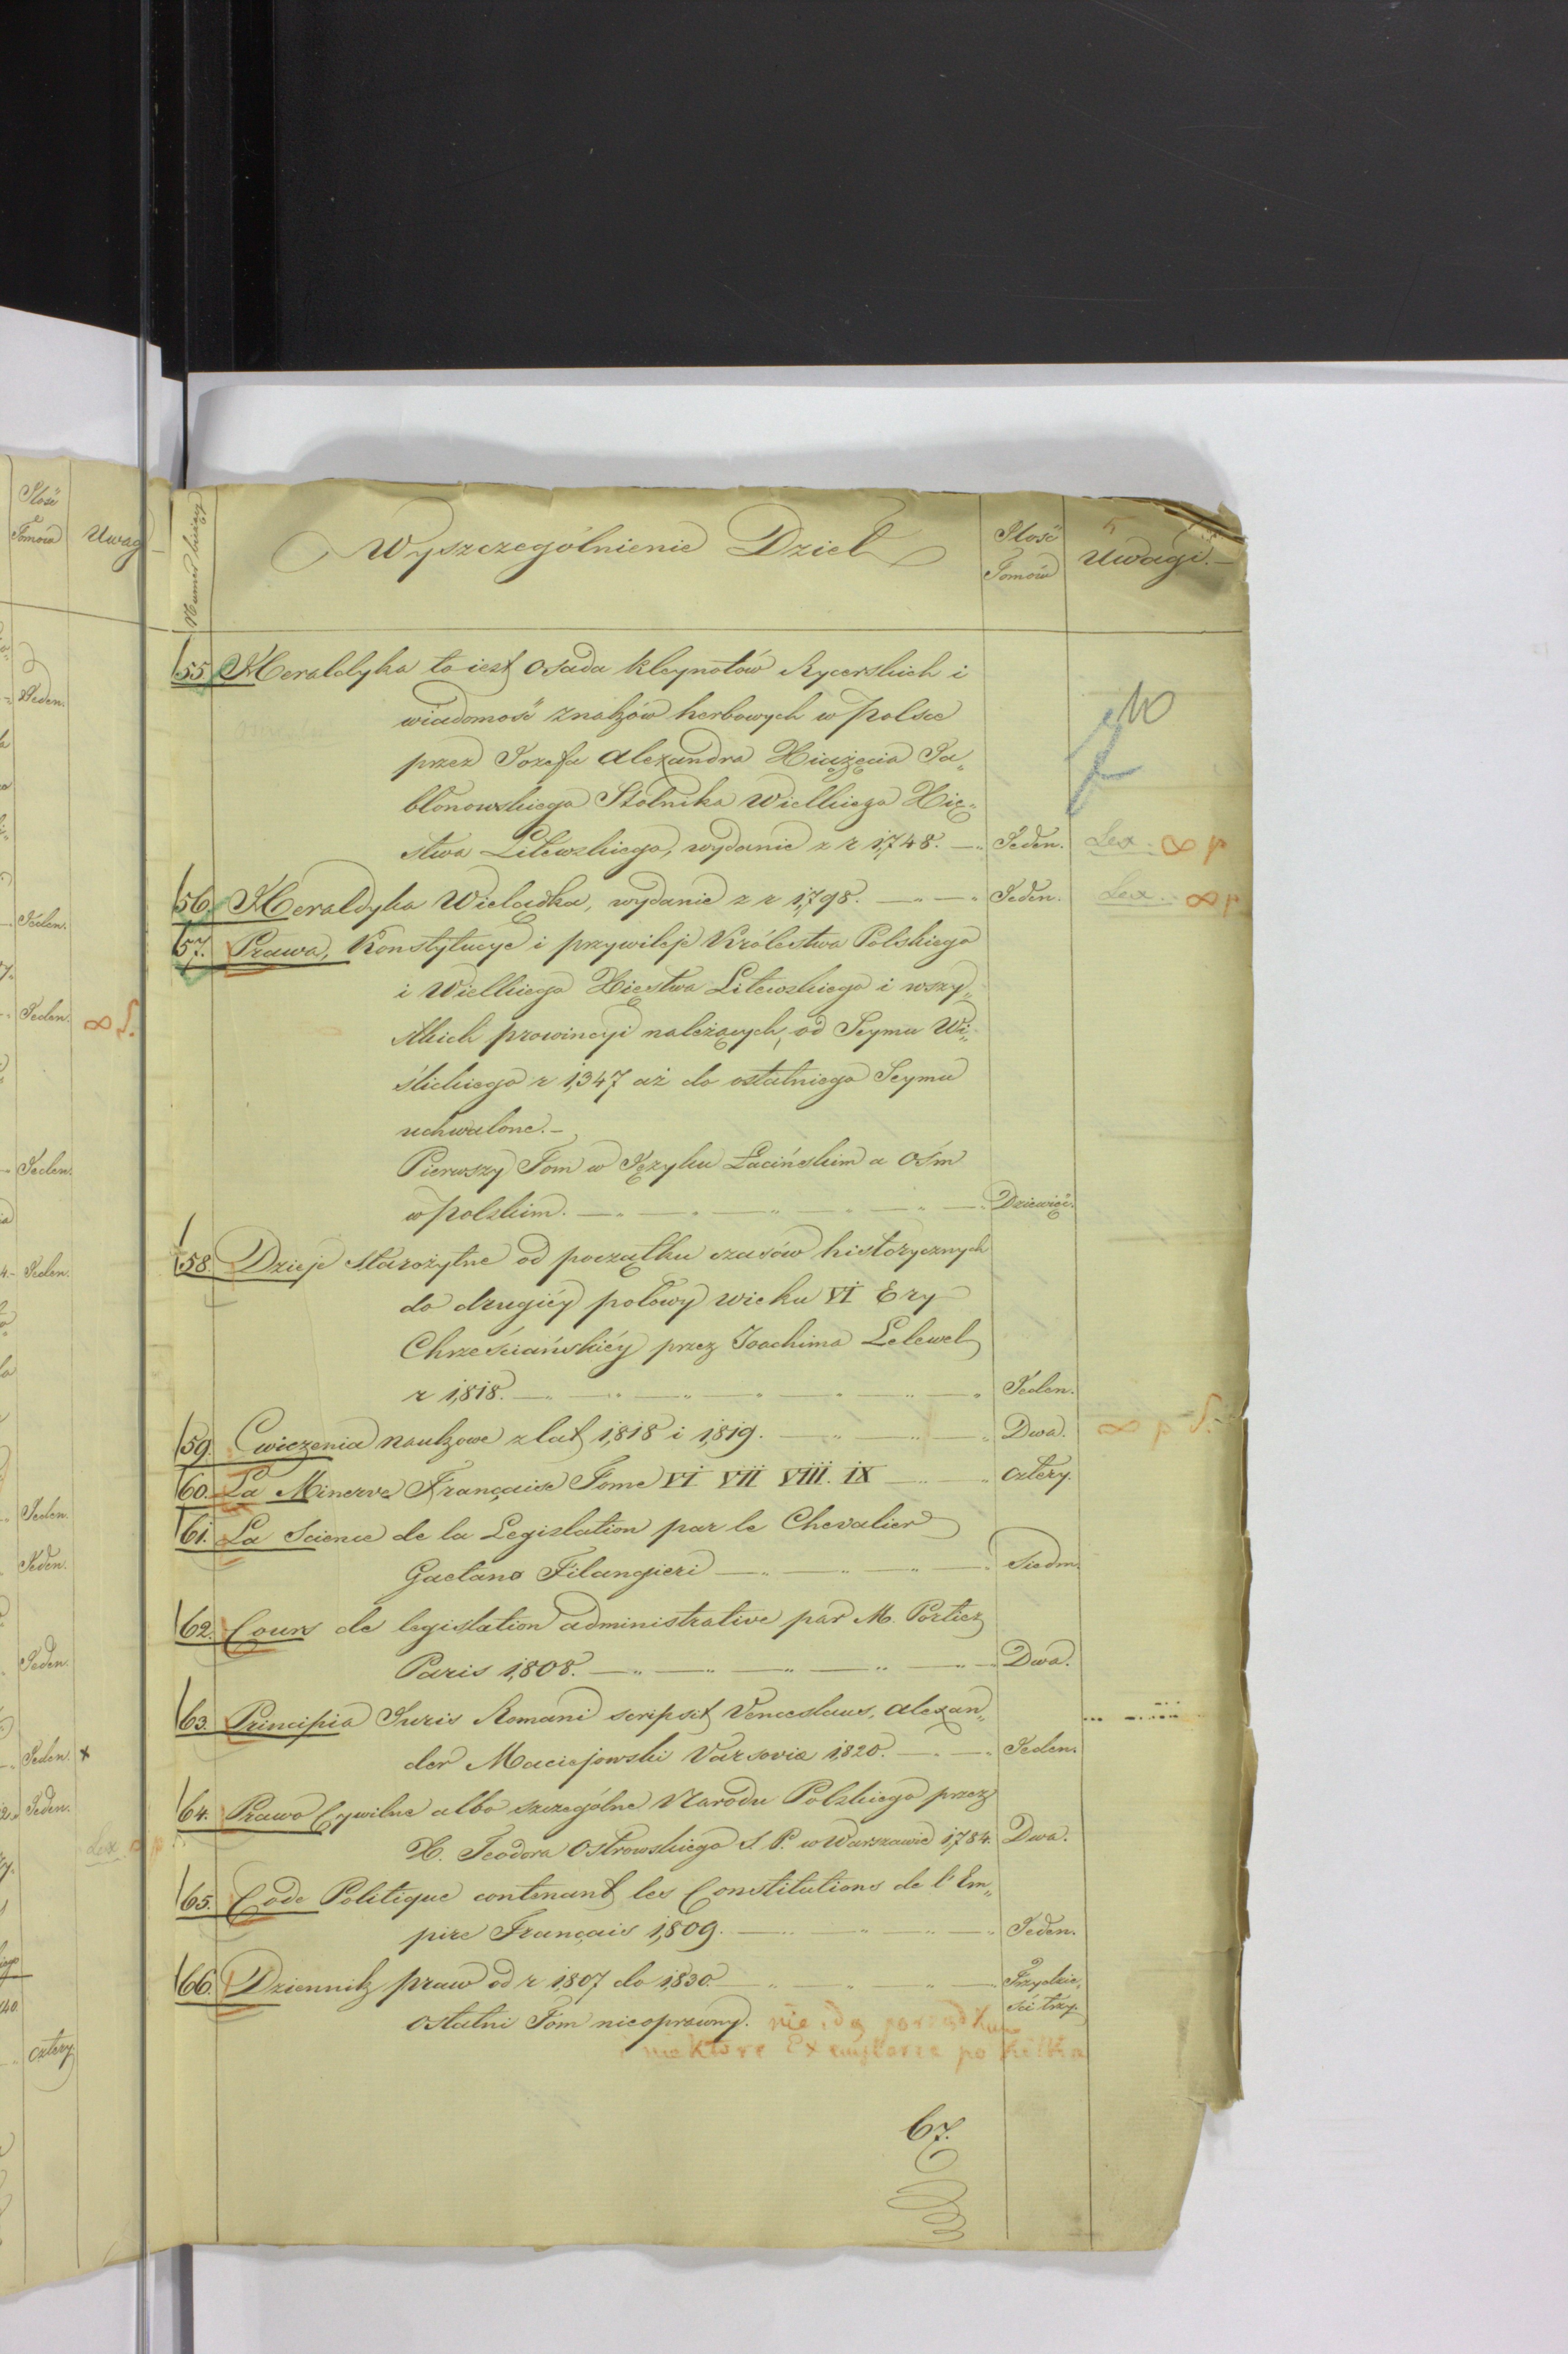 Ilość
Tomów
Uwag
Jeden.
Jeden.
Jeden.
Jeden.
Jeden.
Jeden.
Jeden.
Jeden.
Jeden. x
Jeden.
Lex
cztery
Numer bieżący
Wyszczególnienie Dzieł
Ilość
Tomów
Uwagi.—
55. Heraldyka to iest osada kleynotów Rycerskich i
wiadomość znaków herbowych w Polsce
przez Jozefa Alexandra Xiążęcia Ja„
błonowskiego Stolnika Wielkiego Xię„
stwa Litewskiego, wydanie z r 1,748. — Jeden. Lex. ∞ p
56. Heraldyka Wielądka, wydanie z r 1,798. — „ — „ Jeden. Lex. ∞ p
57. Prawa, Konstytucye i przywileje Królestwa Polskiego
i Wielkiego Xięstwa Litewskiego i wszy„
stkich prowincyi należących, od Seymu Wi„
ślickiego r 1,347 aż do ostatniego Seymu
uchwalone.—
Pierwszy Tom w Języku Łacińskim a Ośm
w Polskim. — „ — „ — „ — „ — „ — Dziewięć.
58. Dzieje starożytne od początku czasów historycznych
do drugiéy połowy wieku VI Ery
Chrześciańskiéy przez Joachima Lelewel
r 1,818. — „ — „ — „ — „ — „ — „ — „ Jeden.
59. Cwiczenia naukowe z lat 1,818 i 1,819. — „ — „ — „ Dwa. ∞ p
60. La Minerve Française Tome VI VII VIII. IX — „ — „ cztery.
61. La Science de la Legislation par le Chevalier
Gaetano Filangieri — „ — „ — „ — „ Siedm.
62. Cours de legislation administrative par M. Portiez
Paris 1,808. — „ — „ — „ — „ — „ — Dwa.
63. Principia Juris Romani scripsit Venceslaus, Alexan„
der Maciejowski Varsovia 1,820. — „ — „ Jeden.
64. Prawo Cywilne albo szczególne Narodu Polskiego przez
X. Teodora Ostrowskiego S. P. w Warszawie 1,784. Dwa.
65. Code Politique contenant les Constitutions de l'Em„
pire Français 1,809. — „ — „ — „ — „ Jeden.
66. Dziennik praw od r 1,807 do 1,830. — „ — „ — „ — Trzydzie„
ostatni Tom nieoprawny. nie idą porządkiem ści trzy
i niektóre Exemplarze po kilka
67.